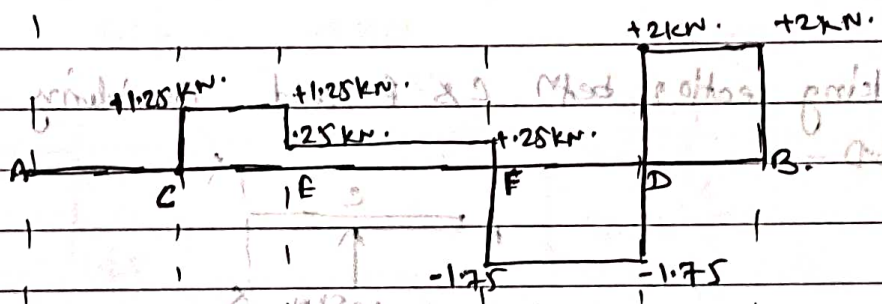 +2kN. +2kN.
+1.25kN. +1.25kN.
.25kN. +.25kN.
A C E F D B.
-1.75 -1.75